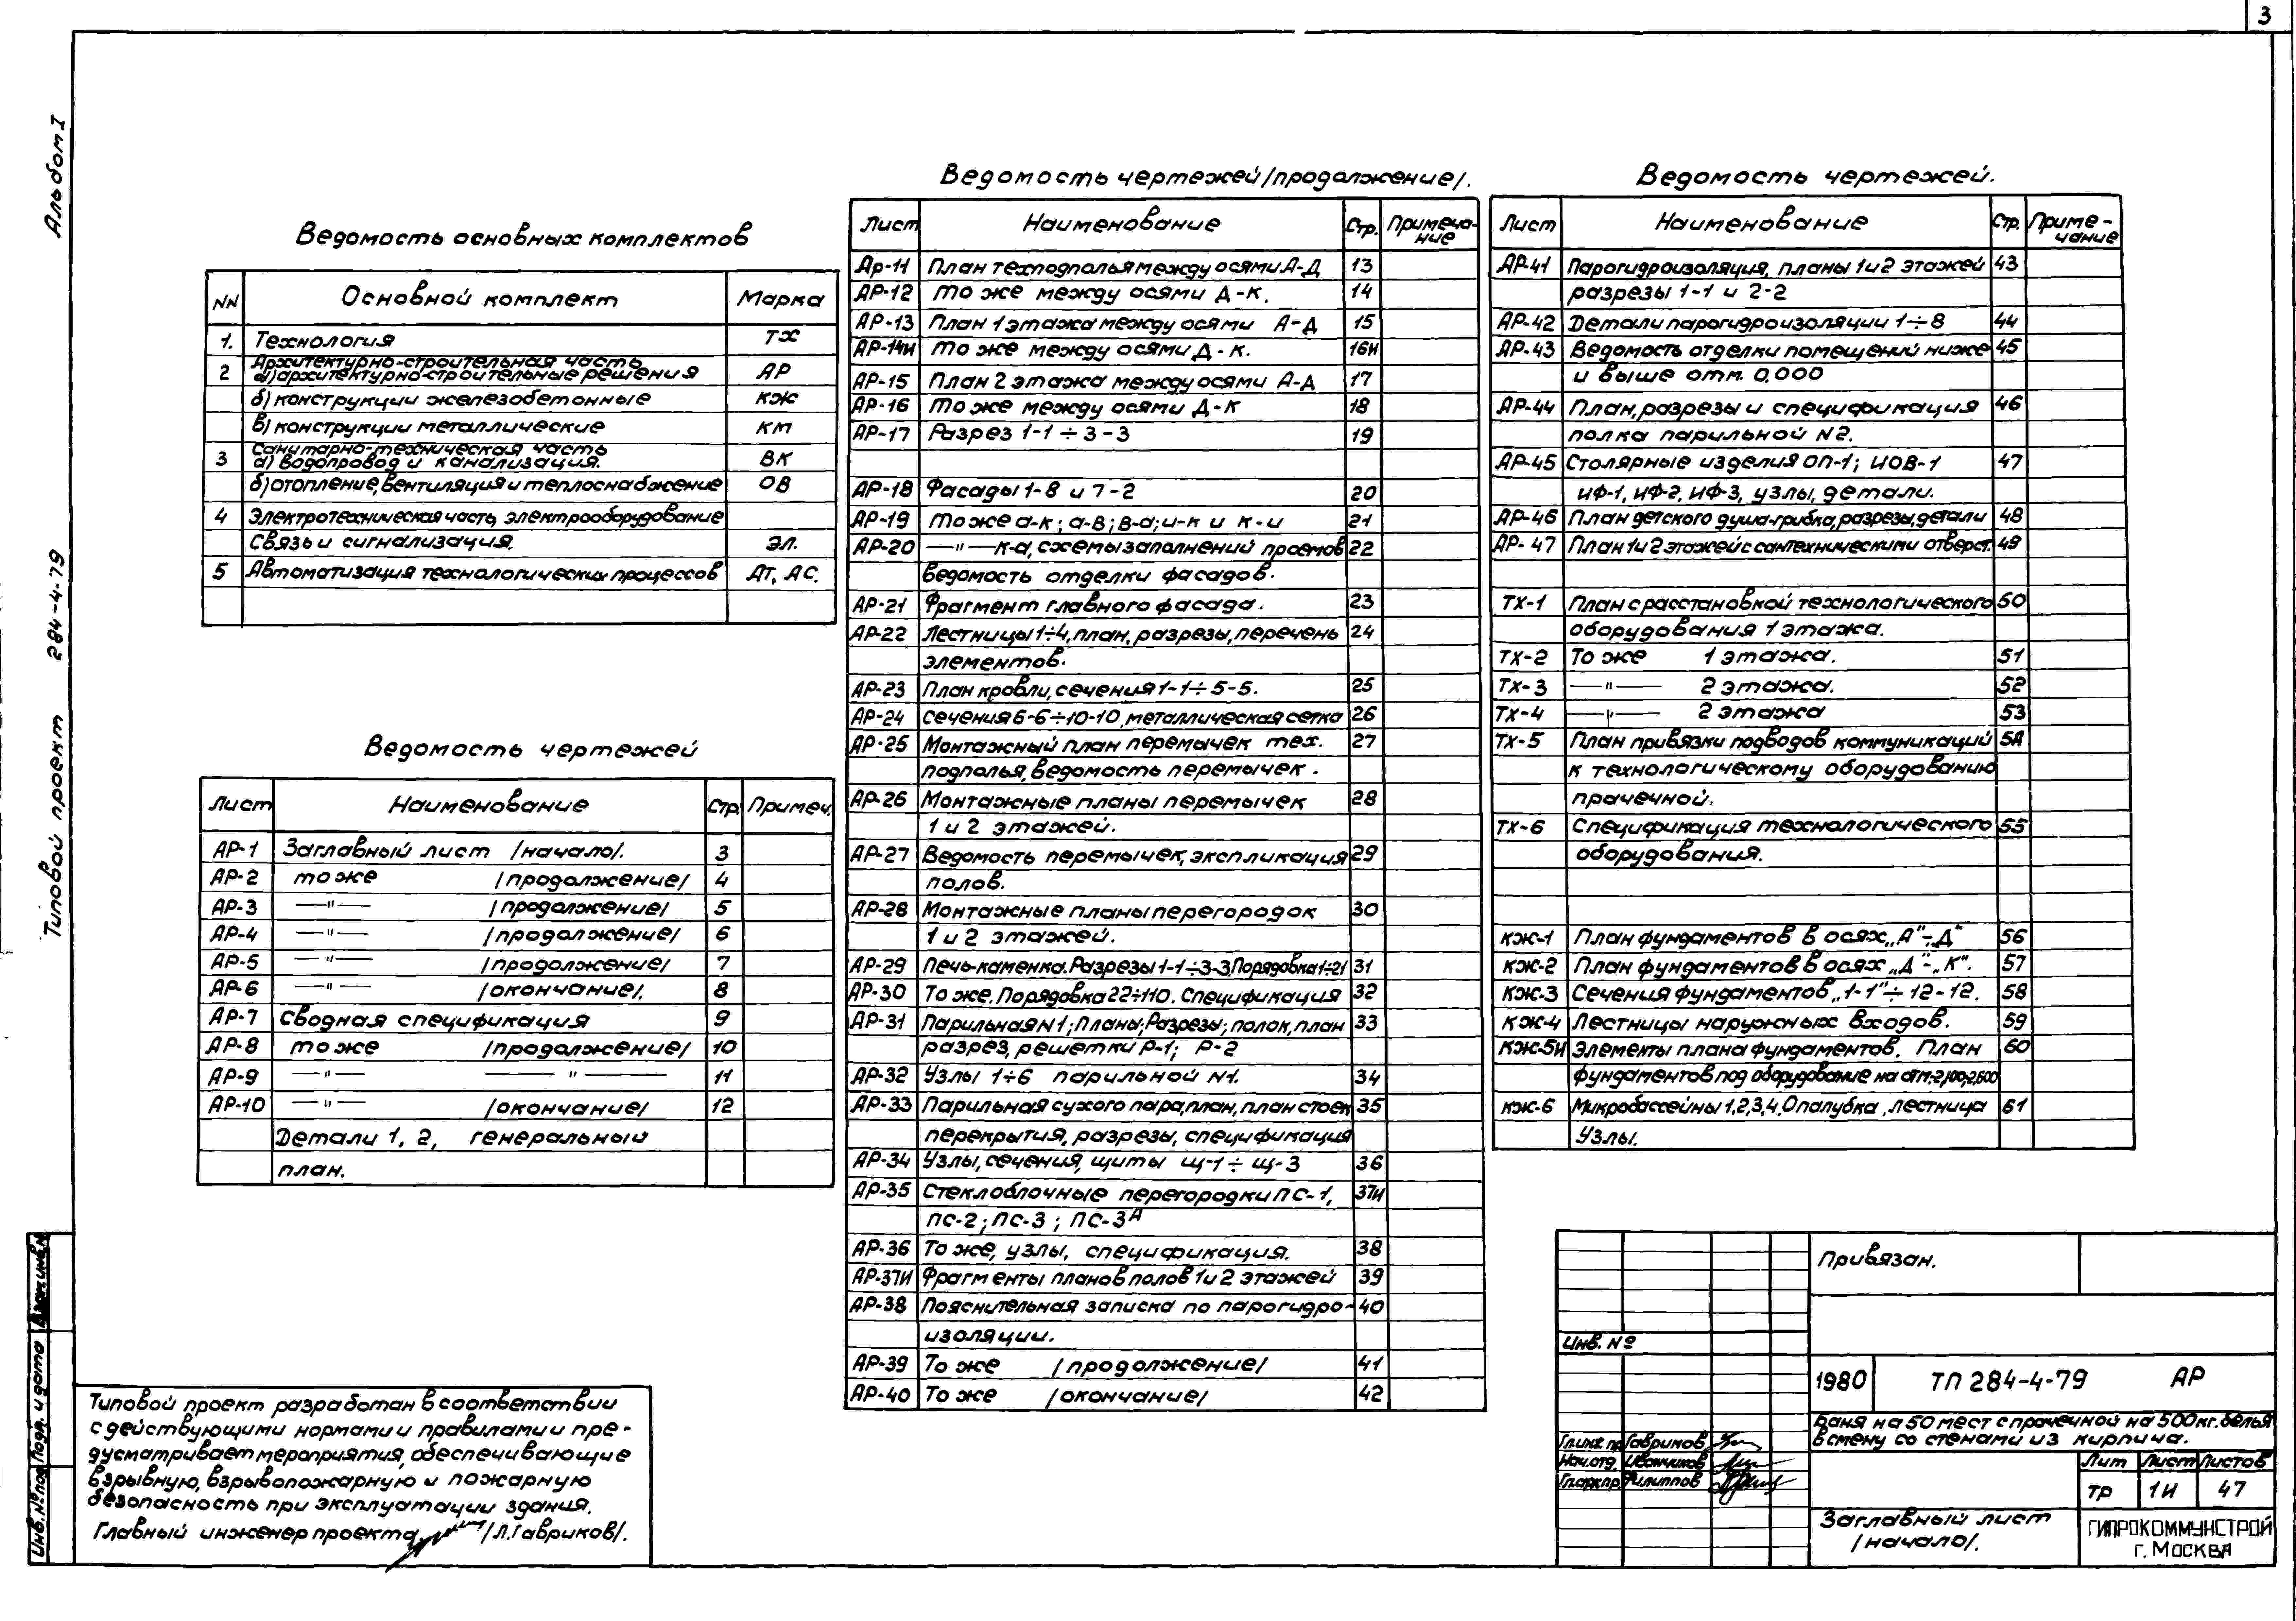 3
Альбом I
Типовой проект 284-4-79
Ведомость основных комплектов
NN Основной комплект Марка
1. Технология ТХ
2 Архитектурно-строительная часть
а) архитектурно-строительные решения АР
б) конструкции железобетонные КЖ
в) конструкции металлические КМ
3 Санитарно-техническая часть
а) водопровод и канализация. ВК
б) отопление, вентиляция и теплоснабжение ОВ
4 Электротехническая часть, электрооборудование
Связь и сигнализация. ЭЛ.
5 Автоматизация технологических процессов АТ, АС.
Ведомость чертежей
Лист Наименование Стр. Примеч.
АР-1 Заглавный лист /начало/. 3
АР-2 то же /продолжение/ 4
АР-3 —"— /продолжение/ 5
АР-4 —"— /продолжение/ 6
АР-5 —"— /продолжение/ 7
АР-6 —"— /окончание/. 8
АР-7 Сводная спецификация 9
АР-8 то же /продолжение/ 10
АР-9 —"— —"— 11
АР-10 —"— /окончание/ 12
Детали 1, 2, генеральный
план.
Ведомость чертежей /продолжение/.
Лист Наименование Стр. Примеча-
ние
Ар-11 План техподполья между осями А-Д 13
АР-12 то же между осями Д-К. 14
АР-13 План 1 этажа между осями А-Д 15
АР-14И то же между осями Д-К. 16И
АР-15 План 2 этажа между осями А-Д 17
АР-16 то же между осями Д-К 18
АР-17 Разрез 1-1÷3-3 19
АР-18 Фасады 1-8 и 7-2 20
АР-19 то же а-к; а-в; в-а; и-к и к-и 21
АР-20 —"— к-а, схемы заполнений проемов 22
ведомость отделки фасадов.
АР-21 Фрагмент главного фасада. 23
АР-22 Лестницы 1÷4, план, разрезы, перечень 24
элементов.
АР-23 План кровли, сечения 1-1÷5-5. 25
АР-24 Сечения 6-6÷10-10, металлическая сетка 26
АР-25 Монтажный план перемычек тех. 27
подполья, ведомость перемычек.
АР-26 Монтажные планы перемычек 28
1 и 2 этажей.
АР-27 Ведомость перемычек, экспликация 29
полов.
АР-28 Монтажные планы перегородок 30
1 и 2 этажей.
АР-29 Печь-каменка. Разрезы 1-1÷3-3. Порядовка 1÷21 31
АР-30 То же. Порядовка 22÷110. Спецификация 32
АР-31 Парильная N1; Планы; Разрезы; полок, план 33
разрез, решетки Р-1; Р-2
АР-32 Узлы 1÷6 парильной N1. 34
АР-33 Парильная сухого пара, план, план стоек 35
перекрытия, разрезы, спецификация
АР-34 Узлы, сечения, щиты щ-1÷щ-3 36
АР-35 Стеклоблочные перегородки ПС-1, 37И
ПС-2; ПС-3; ПС-3А
АР-36 То же, узлы, спецификация. 38
АР-37И Фрагменты планов полов 1 и 2 этажей 39
АР-38 Пояснительная записка по парогидро- 40
изоляции.
АР-39 То же /продолжение/ 41
АР-40 То же /окончание/ 42
Ведомость чертежей.
Лист Наименование Стр. Приме-
чание
АР-41 Парогидроизоляция, планы 1 и 2 этажей 43
разрезы 1-1 и 2-2
АР-42 Детали парогидроизоляции 1÷8 44
АР-43 Ведомость отделки помещений ниже 45
и выше отм. 0,000
АР-44 План, разрезы и спецификация 46
полка парильной N2.
АР-45 Столярные изделия ОП-1; ИОВ-1 47
ИФ-1, ИФ-2, ИФ-3, узлы, детали.
АР-46 План детского душа-грибка, разрезы, детали 48
АР-47 План 1 и 2 этажей с сантехническими отверст. 49
ТХ-1 План с расстановкой технологического 50
оборудования 1 этажа.
ТХ-2 То же 1 этажа. 51
ТХ-3 —"— 2 этажа. 52
ТХ-4 —"— 2 этажа 53
ТХ-5 План привязки подводов коммуникаций 54
к технологическому оборудованию
прачечной.
ТХ-6 Спецификация технологического 55
оборудования.
КЖ-1 План фундаментов в осях „А"-„Д" 56
КЖ-2 План фундаментов в осях „Д"-„К". 57
КЖ-3 Сечения фундаментов „1-1"÷12-12. 58
КЖ-4 Лестницы наружных входов. 59
КЖ-5И Элементы плана фундаментов. План 60
фундаментов под оборудование на отм.-2,100;-2,600
КЖ-6 Микробассейны 1,2,3,4, Опалубка, лестница 61
Узлы.
Типовой проект разработан в соответствии
с действующими нормами и правилами и пре-
дусматривает мероприятия, обеспечивающие
взрывную, взрывопожарную и пожарную
безопасность при эксплуатации здания.
Главный инженер проекта /Л.Гавриков/.
Инв.№ подл. Подп. и дата Взам.инв.N
Привязан.
Инв. №
1980 ТП 284-4-79 АР
Баня на 50 мест с прачечной на 500 кг. белья
в смену со стенами из кирпича.
Гл.инж.пр. Гавриков
Нач.отд. Иванчиков
Гл.арх.пр. Филиппов
Лит Лист Листов
ТР 1И 47
Заглавный лист
/начало/.
ГИПРОКОММУНСТРОЙ
г. МОСКВА